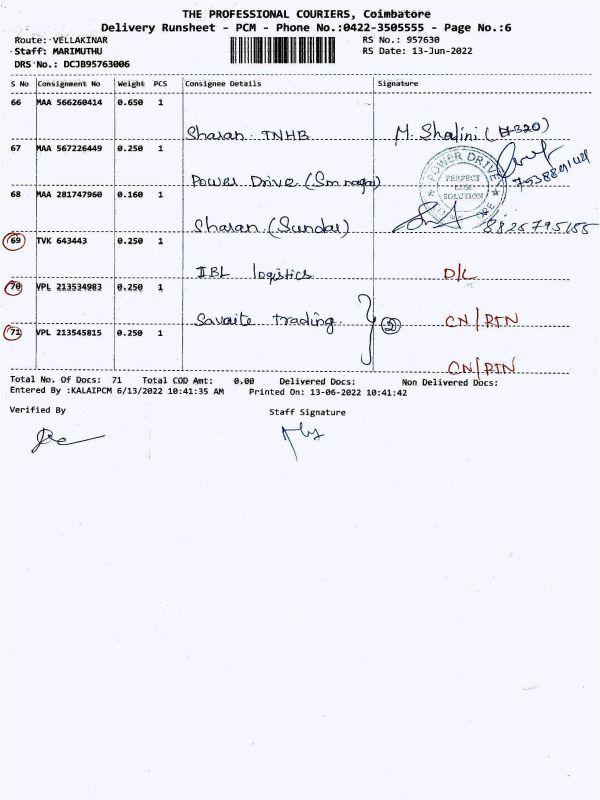 THE PROFESSIONAL COURIERS, Coimbatore
Delivery Runsheet - PCM - Phone No.:0422-3505555 - Page No.:6
Route: VELLAKINAR RS No.: 957630
Staff: MARIMUTHU RS Date: 13-Jun-2022
DRS No.: DCJB95763006
S No Consignment No Weight PCS Consignee Details Signature
66 MAA 566260414 0.650 1
Sharan TNHB M. Shalini (H-320)
67 MAA 567226449 0.250 1
Power Drive (Sm nagar)
POWER DRIVE
PERFECT
LINK
SOLUTION
68 MAA 281747960 0.160 1
Sharan (Sundar) 8825795155
69 TVK 643443 0.250 1
IBL logistics D/L
70 VPL 213534983 0.250 1
Savaite trading. 2 CN/RTN
71 VPL 213545815 0.250 1
CN/RTN
Total No. Of Docs: 71 Total COD Amt: 0.00 Delivered Docs: Non Delivered Docs:
Entered By :KALAIPCM 6/13/2022 10:41:35 AM Printed On: 13-06-2022 10:41:42
Verified By Staff Signature